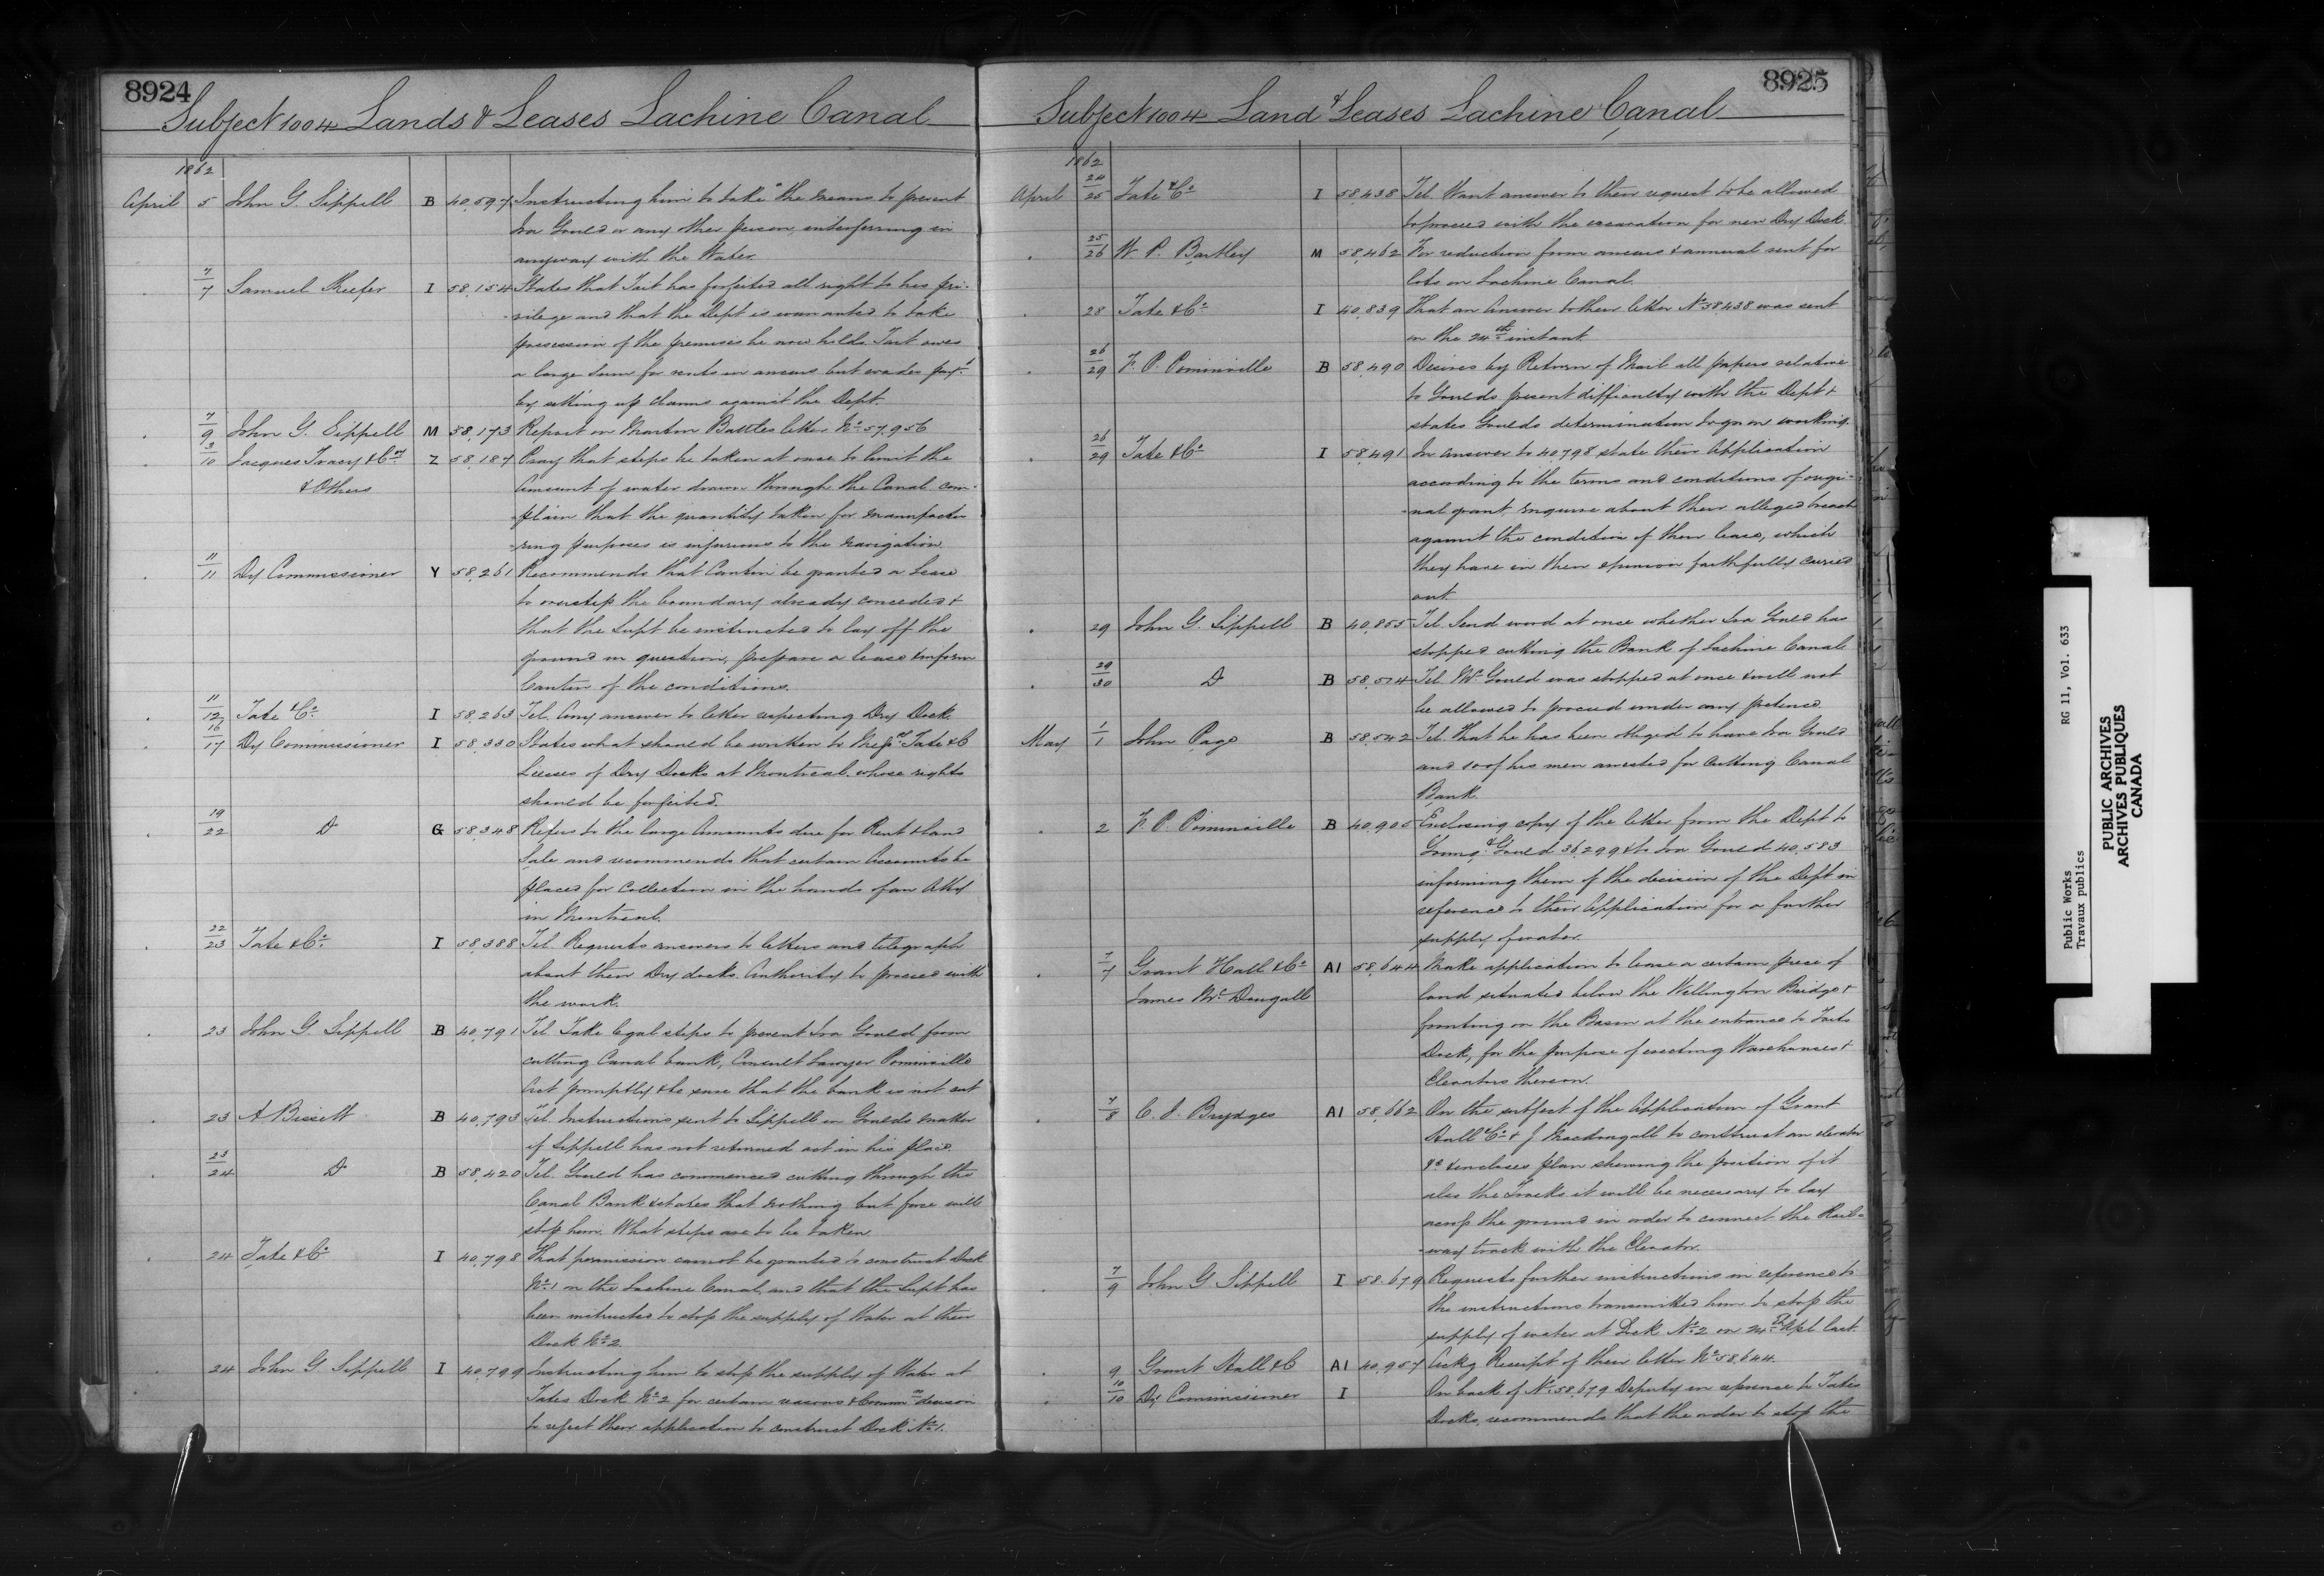 8924
Subject 1004 Lands & Leases Lachine Canal
1862
April 5 John G. Sippell B 40,597 Instructing him to take the means to prevent
Ira Gould or any other person, interferring in
anyway with the Water.
7/7 Samuel Keefer I 58,154 States that Tait has forfeited all right to his pri-
-vilege and that the Dept is warranted to take
possession of the premises he now holds. Tait owes
a large sum for rents in arrears but evades payt.
by setting up claims against the Dept.
7/9 John G. Sippell M 58,173 Report on Martin Battles letter No. 57,956
3/10 Jacques Tracy & Coy Z 58,187 Pray that steps be taken at once to limit the
& Others Amount of water drawn through the Canal com-
-plain that the quantity taken for manufactu
-ring purposes is injurious to the navigation.
11/11 Dy Commissioner Y 58,261 Recommends that Cantin be granted a Lease
to overstep the boundary already conceded &
that the Supt be instructed to lay off the
ground in question, prepare a lease & inform
Cantin of the conditions.
11/12 Tate & Co. I 58,263 Tel. Any answer to letter respecting Dry Dock.
16/17 Dy Commissioner I 58,330 States what should be written to Messrs Tate & C
Lessees of Dry Docks at Montreal, whose rights
should be forfeited.
19/22 Do G 58,348 Refers to the large Amounts due for Rent & Land
Sale and recommends that certain Accounts be
placed for Collection in the hands of an Atty
in Montreal.
22/23 Tate & Co. I 58,388 Tel. Requests answers to letters and telegraph
about their Dry docks. Authority to proceed with
the work.
23 John G Sippell B 40,791 Tel. Take legal steps to prevent Ira Gould from
cutting Canal bank, Consult Lawyer Pominville
Act promptly & be sure that the bank is not cut
23 A Bissett B 40,793 Tel. Instructions sent to Sippell in Goulds matter
if Sippell has not returned act in his place.
23/24 Do B 58,420 Tel. Gould has commenced cutting through the
Canal Bank & states that nothing but force will
stop him. What steps are to be taken.
24 Tate & Co. I 40,798 That permission cannot be granted to construct Dock
No. 1 on the Lachine Canal, and that the Supt has
been instructed to stop the supply of Water at their
Dock No. 2.
24 John G. Sippell I 40,799 Instructing him to stop the supply of Water at
Tates Dock No. 2 for certain reasons & Commrs decision
to reject their application to construct Dock No. 1.
8925
Subject 1004 Land & Leases Lachine Canal
1862
April 24/25 Tate & Co. I 58,438 Tel. Want answer to their request to be allowed
to proceed with the excavation for new Dry Dock.
25/26 W. P. Bartley M 58,462 For reduction from arrears & annual rent for
lots on Lachine Canal.
28 Tate & Co. I 40,839 That an Answer to their letter No. 58438 was sent
on the 24th instant
26/29 F. P. Pominville B 58,490 Desires by Return of Mail all papers relative
to Goulds present difficulty with the Dept &
states Goulds determination to go on working.
26/29 Tate & Co. I 58,491 In answer to 40798 state their Application
according to the terms and conditions of origi-
-nal grant, enquire about their alleged breach
against the condition of their lease, which
they have in their opinion faithfully carried
out
29 John G. Sippell B 40,855 Tel. Send word at once whether Ira Gould has
stopped cutting the Bank of Lachine Canal
29/30 Do B 58,514 Tel. Mr. Gould was stopped at once & will not
be allowed to proceed under any pretence
May 1/1 John Page B 58,542 Tel. That he has been obliged to have Ira Gould
and 10 of his men arrested for Cutting Canal
Bank.
2 F. P. Pominville B 40,905 Enclosing copy of the letter from the Dept to
Young & Gould 36,299 & to Ira Gould 40,583
informing them of the decision of the Dept in
reference to their Application for a further
supply of water.
7/7 Grant Hall & Co. A1 58,644 Make application to lease a certain piece of
James McDougall land situated below the Wellington Bridge &
fronting on the Basin at the entrance to Taits
Dock, for the purpose of erecting Warehouses &
Elevators thereon.
7/8 C. J. Brydges A1 58,662 On the subject of the Application of Grant
Hall & Co. & J Macdougall to construct an elevator
&c & encloses plan shewing the position of it
also the Tracks it will be necessary to lay
across the ground in order to connect the Rail-
-way track with the Elevator.
7/9 John G Sippell I 58,679 Requests further instructions in reference to
the instructions transmitted him to stop the
supply of water at Dock No. 2 on 24th Apl last.
9 Grant Hall & C A1 40,957 Ackg Receipt of their letter No. 58,644.
10/10 Dy Commissioner I On back of No. 58,679 Deputy in reference to Tates
Docks, recommends that the order to stop the
Public Works RG 11, Vol. 633
Travaux publics
PUBLIC ARCHIVES
ARCHIVES PUBLIQUES
CANADA